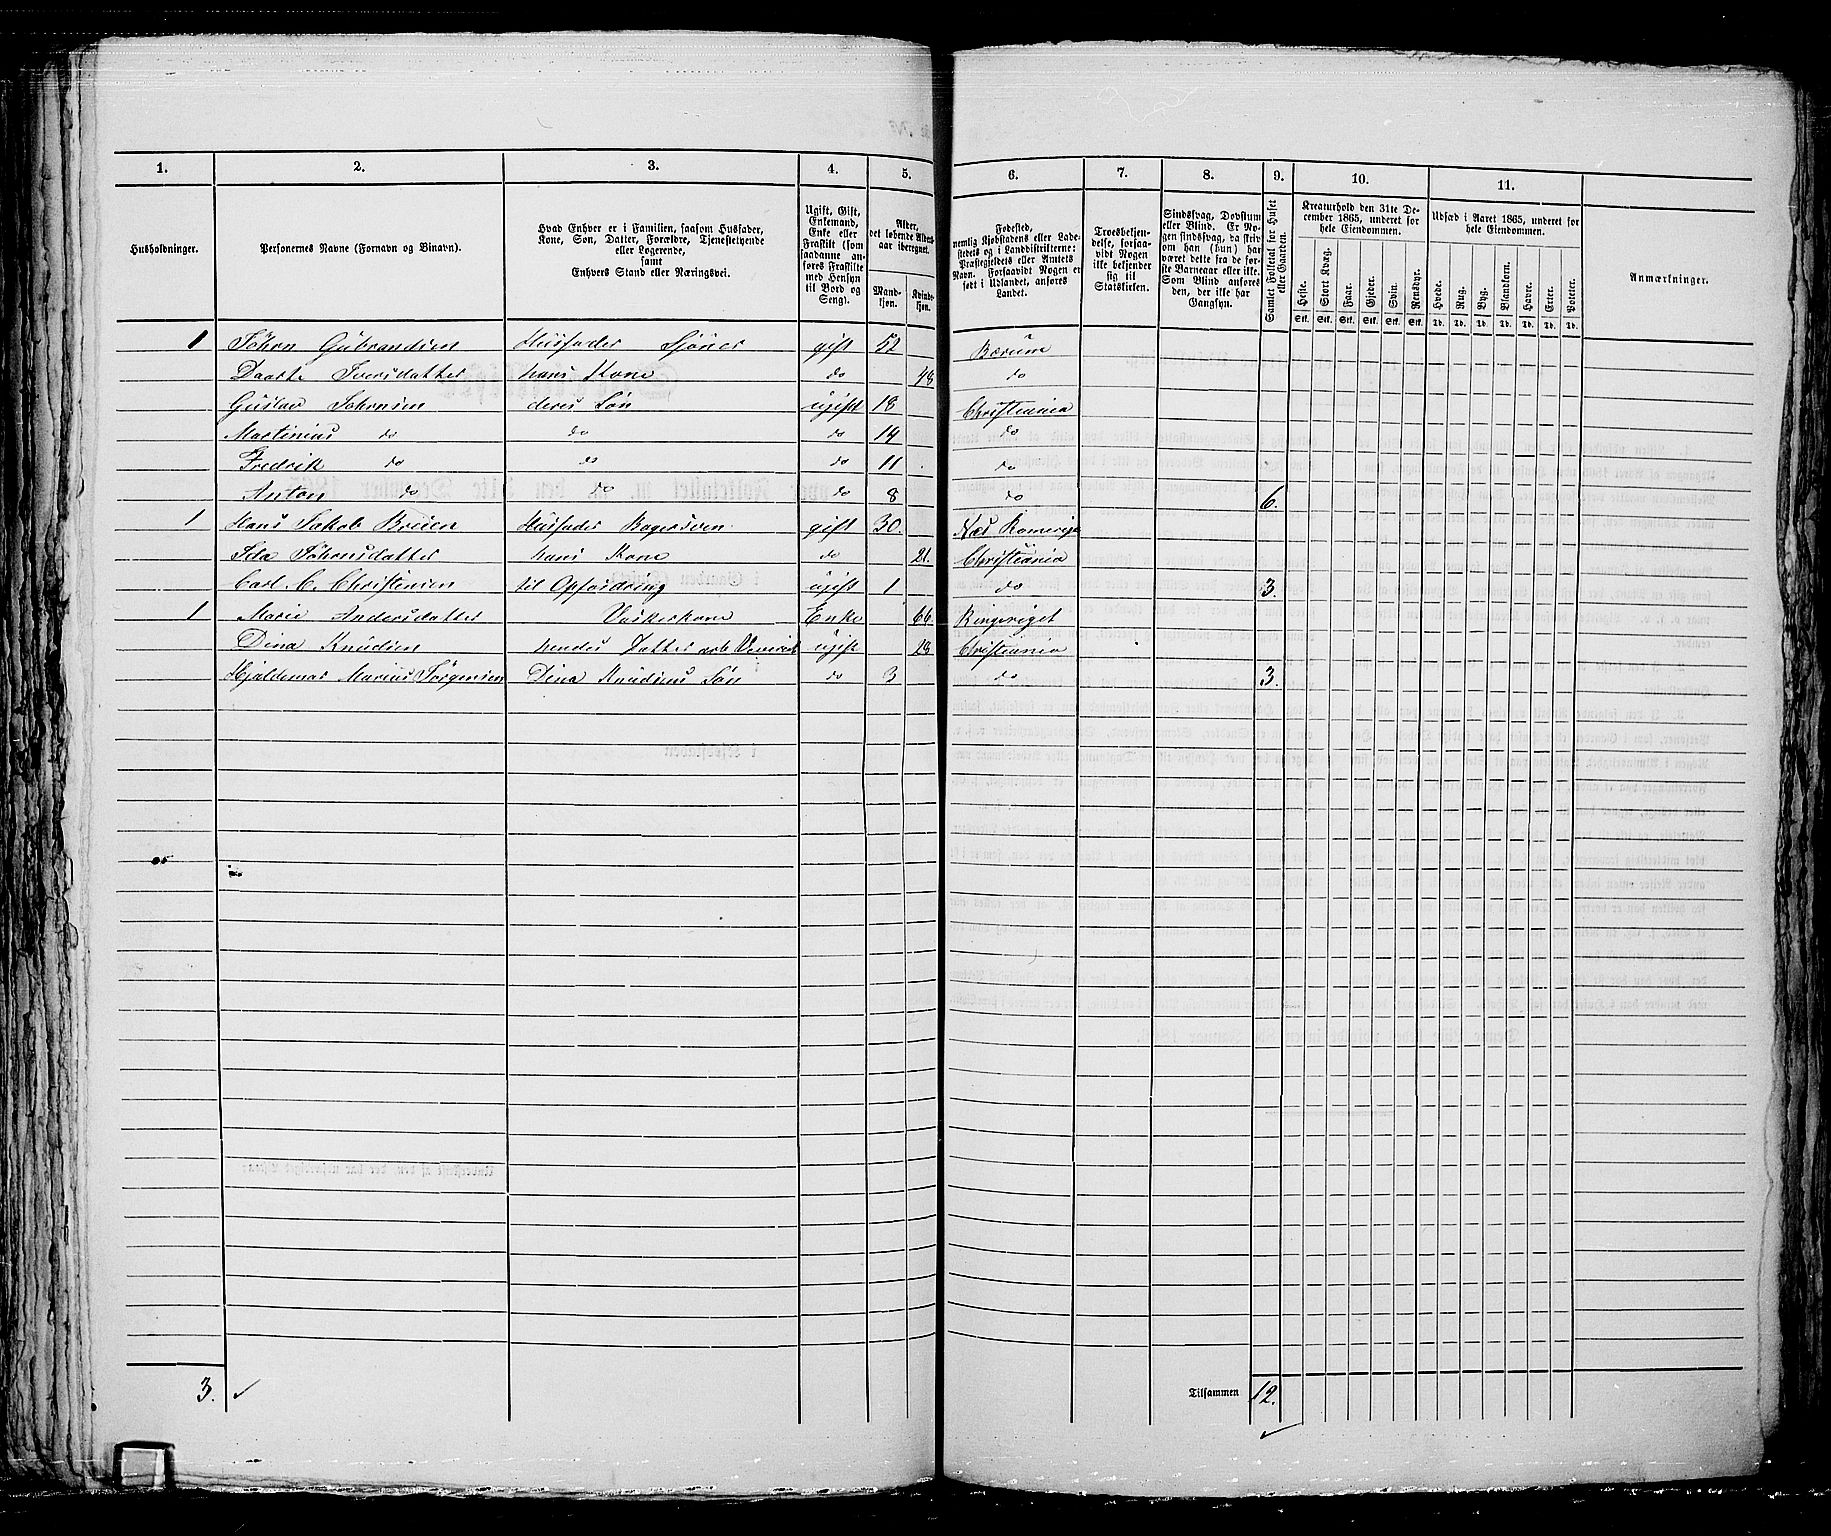 1. 2. 3. 4. 5. 6. 7. 8. 9. 10. 11.
Husholdninger.
Personernes Navne (Fornavn og Binavn).
Hvad Enhver er i Familien, saasom Husfader,
Kone, Søn, Datter, Forældre, Tjenestetyende
eller Logerende,
samt
Enhvers Stand eller Næringsvei.
Ugift, Gift,
Enkemand,
Enke eller
Fraskilt (som
saadanne an-
føres Fraskilte
med Hensyn
til Bord og
Seng).
Alder,
det løbende Alders-
aar iberegnet.
Mand-
kjøn.
Kvinde-
kjøn.
Fødested,
nemlig Kjøbstadens eller Lade-
stedets og i Landdistrikterne:
Præstegjeldets eller Amtets
Navn. Forsaavidt Nogen er
født i Udlandet, anføres
Landet.
Troesbekjen-
delse, forsaa-
vidt Nogen
ikke bekjender
sig til
Statskirken.
Sindssvag, Døvstum
eller Blind. Er No-
gen sindssvag, da skriv
om han (hun) har
været dette fra de før-
ste Barneaar eller ikke.
Som Blind anføres
den, der ikke har
Gangsyn.
Samlet Folketal for Huset
eller Gaarden.
Kreaturhold den 31te De-
cember 1865, underet for
hele Eiendommen.
Heste. Stort Kvæg. Faar. Gjeder. Svin. Rensdyr.
Stk. Stk. Stk. Stk. Stk. Stk.
Udsæd i Aaret 1865, underet for
hele Eiendommen.
Hvede. Rug. Byg. Blandkorn. Havre. Erter. Poteter.
Td. Td. Td. Td. Td. Td. Td.
Anmærkninger.
1 Johrn Gubrandsen Husfader Sjouer gift 52 Bærum
Daarte Iversdatter hans Kone do 48 do
Gustav Johrnsen deres Søn ugift 18 Christiania
Martinius do do do 14 do
Fredrik do do do 11 do
Anton do do do 8 do 6.
1 Hans Jakob Breien Husfader Bagersven gift 30. Næs Romerige
Ida Johrnsdatter hans Kone do 21. Christiania
Carl. C. Christensen til Opfostring ugift 1 do 3.
1 Marie Andersdatter Vaskerkone Enke 66 Ringeriget
Dina Knudsen hendes Datter ugift 28 Christiania
Hjaldemar Marius Jørgensen Dina Knudsens Søn do 3 do 3.
3. Tilsammen 12.